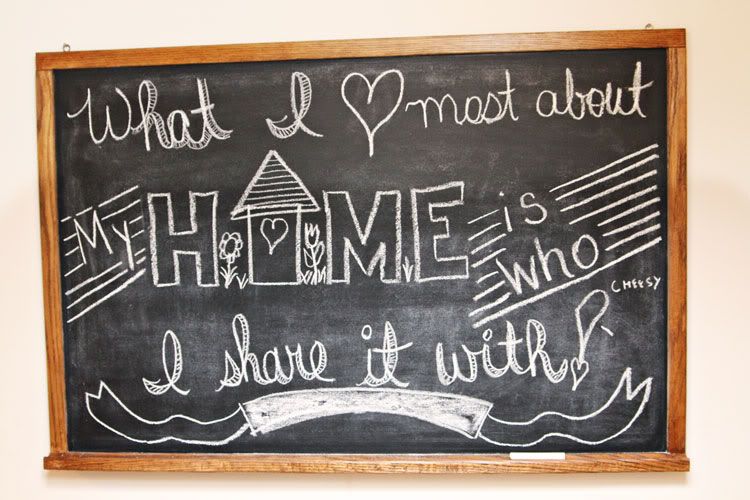 What I ♡ most about
My HOME is who
CHEESY
I share it with!